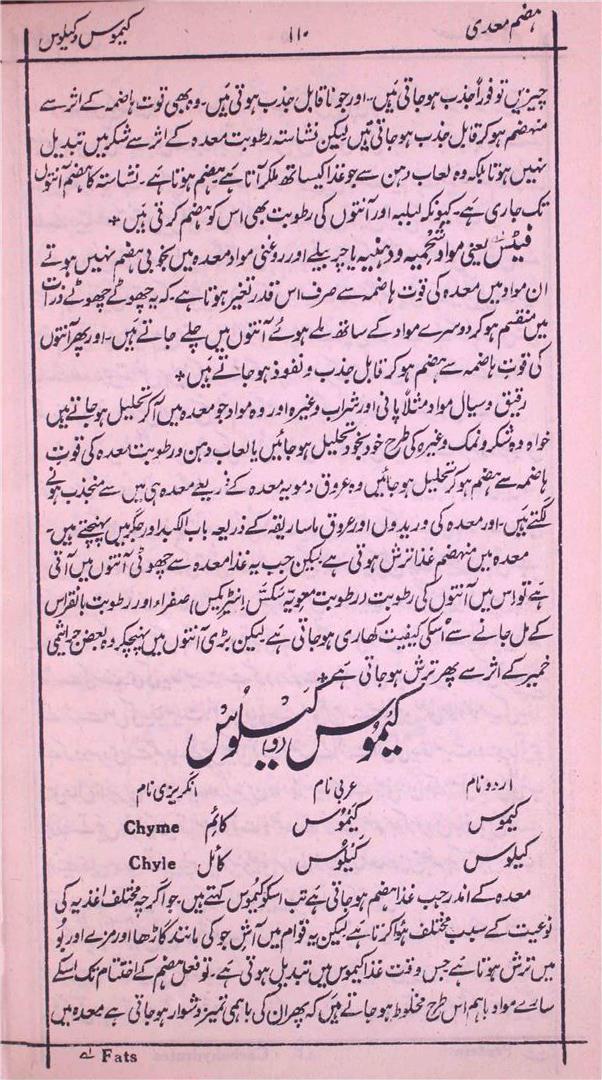 ہضم معدی ۱۱۰ کیموس وکیلوس
چیزیں تو فوراً جذب ہوجاتی ہیں۔ اور جو ناقابل جذب ہوتی ہیں۔ وہ بھی قوت ہاضمہ کے اثر سے
منہضم ہوکر قابل جذب ہوجاتی ہیں لیکن نشاستہ رطوبت معدہ کے اثر سے شکر میں تبدیل
نہیں ہوتا بلکہ وہ لعاب دہن سے جو غذا کیساتھ ملکر آتا ہے ہضم ہوتا ہے۔ نشاستہ کا ہضم آنتوں
تک جاری ہے۔ کیونکہ لبلبہ اور آنتوں کی رطوبت بھی اس کو ہضم کرتی ہیں +
فیٹس یعنی مواد شحمیہ و دہنیہ یا چربیلے اور روغنی مواد معدہ میں بخوبی ہضم نہیں ہوتے
ان مواد میں معدہ کی قوت ہاضمہ سے صرف اس قدر تغیر ہوتا ہے۔ کہ یہ چھوٹے چھوٹے ذرات
میں منقسم ہوکر دوسرے مواد کے ساتھ ملے ہوئے آنتوں میں چلے جاتے ہیں۔ اور پھر آنتوں
کی قوت ہاضمہ سے ہضم ہوکر قابل جذب و نفوذ ہوجاتے ہیں +
رقیق و سیال مواد مثلاً پانی اور شراب وغیرہ اور وہ مواد جو معدہ میں آکر تحلیل ہوجاتے ہیں
خواہ وہ شکر و نمک وغیرہ کی طرح خود بخود تحلیل ہوجائیں یا لعاب دہن و رطوبت معدہ کی قوت
ہاضمہ سے ہضم ہوکر تحلیل ہوجائیں وہ عروق دمویہ معدہ کے ذریعے معدہ ہی میں سے منجذب ہونے
لگتے ہیں۔ اور معدہ کی وریدوں اور عروق ماساریقہ کے ذریعہ باب الکبد اور جگر میں پہنچتے ہیں۔
معدہ میں منہضم غذا ترش ہوتی ہے لیکن جب یہ غذا معدہ سے چھوٹی آنتوں میں آتی
ہے تو اس میں آنتوں کی رطوبت در طوبت معویہ سکس انٹیریکس) صفراء اور رطوبت بانقراس
کے مل جانے سے اسکی کیفیت کھاری ہوجاتی ہے لیکن بڑی آنتوں میں پہنچکر وہ بعض جراثیمی
خمیر کے اثر سے پھر ترش ہوجاتی ہے +
کیموس کیلوس
اردو نام عربی نام انگریزی نام
کیموس کیموس کائم Chyme
کیلوس کیلوس کائل Chyle
معدہ کے اندر جب غذا ہضم ہوجاتی ہے تب اسکو کیموس کہتے ہیں۔ جو اگرچہ مختلف اغذیہ کی
نوعیت کے سبب مختلف ہوا کرتا ہے لیکن یہ قوام میں آش جو کی مانند گاڑھا اور مزے اور بو
میں ترش ہوتا ہے جس وقت غذا کیموس میں تبدیل ہوتی ہے۔ تو فعل ہضم کے اختتام تک اسکے
سارے مواد باہم اس طرح مخلوط ہوجاتے ہیں کہ پھر ان کی باہمی تمیز دشوار ہوجاتی ہے معدہ میں
لے Fats